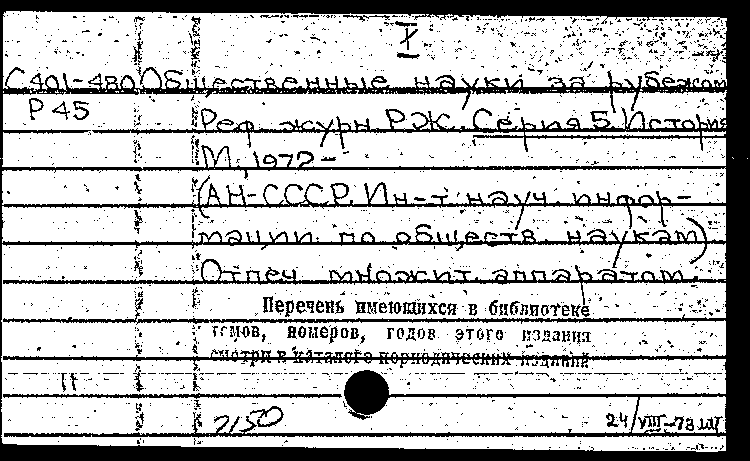 I
С401-480 Общественные науки за рубежом
Р45
Реф. журн. РЖ. Серия 5. История
М., 1972-
(АН-СССР. Ин-т науч. инфор-
мации по обществ. наукам)
Отпеч. множит. аппаратом.
Перечень имеющихся в библиотеке
томов, номеров, годов этого издания
смотри в каталоге периодических изданий
11
2150
24/VIII-73